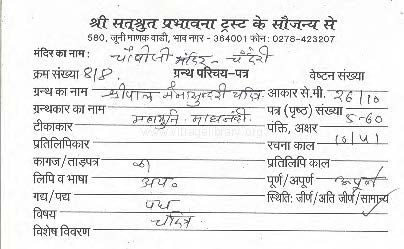 श्री सत्श्रुत प्रभावना ट्रस्ट के सौजन्य से
580, जूनी माणक वाडी, भाव नगर - 364001 फोन : 0278-423207
मंदिर का नाम : चौबीसी मंदिर - चंदेरी
क्रम संख्या 818 ग्रन्थ परिचय-पत्र वेष्टन संख्या
ग्रन्थ का नाम श्रीपाल मैनासुन्दरी चरित्र आकार से.मी. 26/10
ग्रन्थकार का नाम महामुनि माघनंदी पत्र (पृष्ठ) संख्या 5-60
टीकाकार पंक्ति, अक्षर 10/41
प्रतिलिपिकार रचना काल
कागज/ताड़पत्र का प्रतिलिपि काल
लिपि व भाषा अप॰ पूर्ण/अपूर्ण अपूर्ण
गद्य/पद्य पद्य स्थिति: जीर्ण/अति जीर्ण/सामान्य
विषय चरित्र
विशेष विवरण
www.vitragelibrary.org